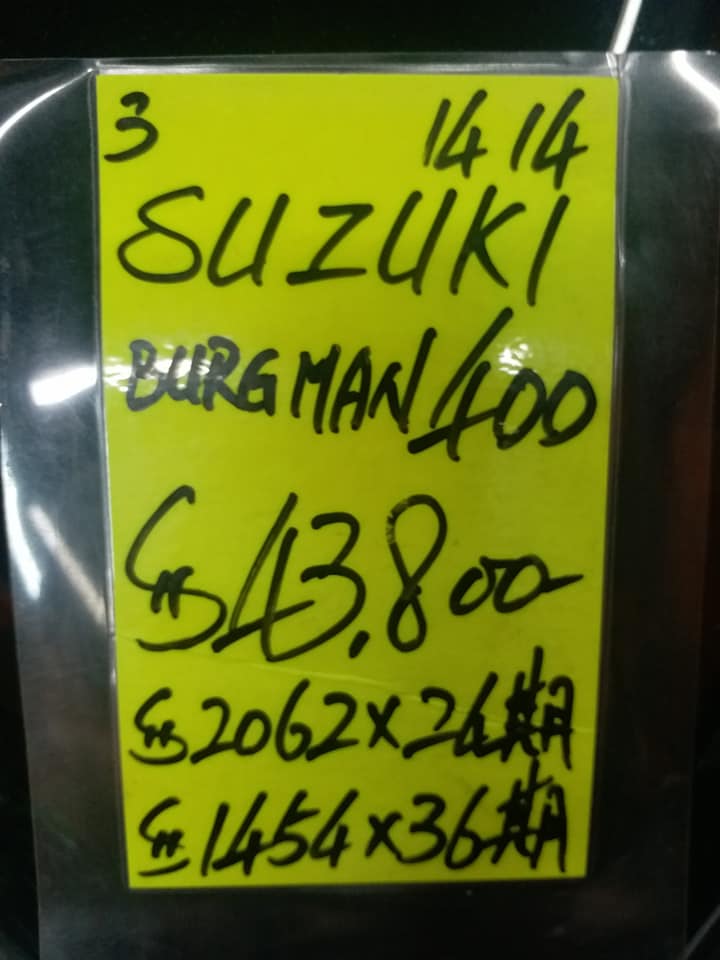 3 14 14
SUZUKI
BURGMAN/400
$43,800
$2062×24期
$1454×36期